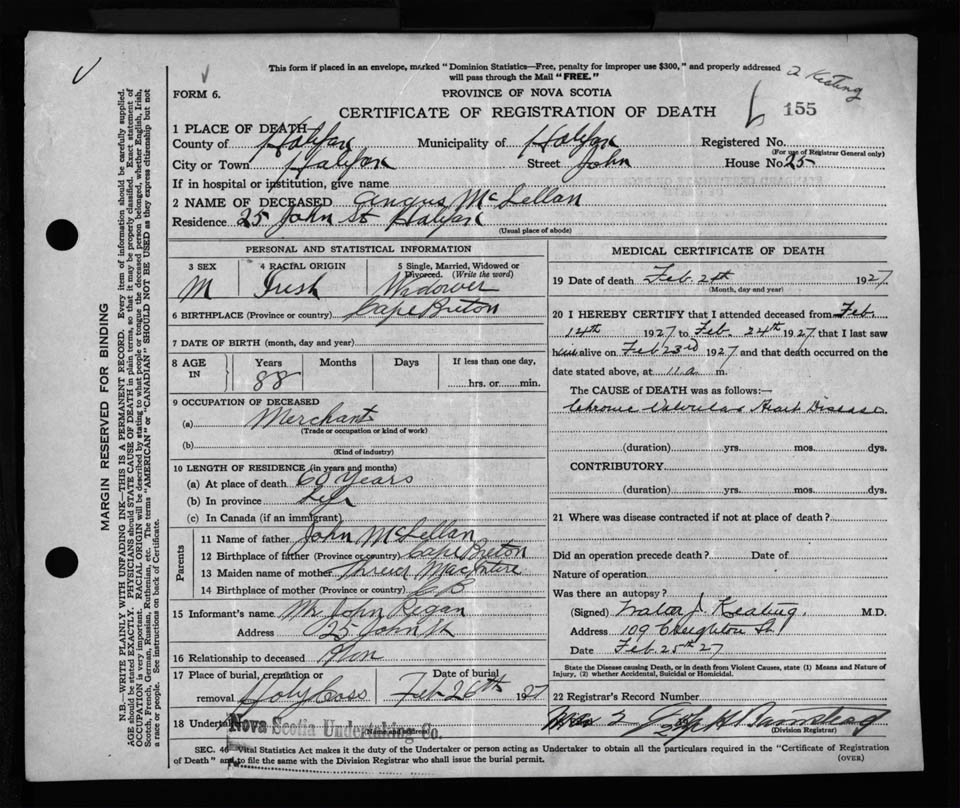 This form if placed in an envelope, marked "Dominion Statistics—Free, penalty for improper use $300," and properly addressed
will pass through the Mail "FREE."
Keating
FORM 6.
PROVINCE OF NOVA SCOTIA
CERTIFICATE OF REGISTRATION OF DEATH
155
1 PLACE OF DEATH
County of Halifax Municipality of Halifax Registered No.
(For use of Registrar General only)
City or Town Halifax Street John House No. 25
If in hospital or institution, give name
2 NAME OF DECEASED Angus McLellan
Residence 25 John St Halifax
(Usual place of abode)
PERSONAL AND STATISTICAL INFORMATION
3 SEX 4 RACIAL ORIGIN 5 Single, Married, Widowed or Divorced. (Write the word)
M Irish Widower
6 BIRTHPLACE (Province or country) Cape Breton
7 DATE OF BIRTH (month, day and year)
8 AGE IN Years Months Days If less than one day,
88 hrs. or min.
9 OCCUPATION OF DECEASED
(a) Merchant
(Trade or occupation or kind of work)
(b)
(Kind of industry)
10 LENGTH OF RESIDENCE (in years and months)
(a) At place of death 60 Years
(b) In province
(c) In Canada (if an immigrant)
Parents
11 Name of father John McLellan
12 Birthplace of father (Province or country) Cape Breton
13 Maiden name of mother MacIntire
14 Birthplace of mother (Province or country) C B
15 Informant's name Mr John Regan
Address 25 John St
16 Relationship to deceased
17 Place of burial, cremation or removal Holy Cross Date of burial Feb 26th 1927
18 Undertaker Nova Scotia Undertaking Co.
(Name and address)
MEDICAL CERTIFICATE OF DEATH
19 Date of death Feb. 1927
(Month, day and year)
20 I HEREBY CERTIFY that I attended deceased from Feb.
14th 1927 to Feb. 24th 1927 that I last saw
him alive on Feb 23rd 1927 and that death occurred on the
date stated above, at 11 a m.
The CAUSE of DEATH was as follows:—
Chronic Valvular Heart Disease
(duration) yrs. mos. dys.
CONTRIBUTORY
(duration) yrs. mos. dys.
21 Where was disease contracted if not at place of death?
Did an operation precede death? Date of
Nature of operation
Was there an autopsy?
(Signed) Walter J. Keating. M.D.
Address 109 Creighton St
Date Feb. 25th 27
State the Disease causing Death, or in death from Violent Causes, state (1) Means and Nature of
Injury, (2) whether Accidental, Suicidal or Homicidal.
22 Registrar's Record Number
(Division Registrar)
SEC. 46 Vital Statistics Act makes it the duty of the Undertaker or person acting as Undertaker to obtain all the particulars required in the "Certificate of Registration
of Death" and to file the same with the Division Registrar who shall issue the burial permit.
(OVER)
MARGIN RESERVED FOR BINDING
N.B.—WRITE PLAINLY WITH UNFADING INK—THIS IS A PERMANENT RECORD. Every item of information should be carefully supplied.
AGE should be stated EXACTLY. PHYSICIANS should STATE CAUSE OF DEATH in plain terms, so that it may be properly classified. Exact statement of
OCCUPATION is very important. RACIAL ORIGIN will be described by stating to what people or tongue the deceased person belonged, whether English, Irish,
Scotch, French, German, Russian, Ruthenian, etc. The terms "AMERICAN" or "CANADIAN" SHOULD NOT BE USED as they express citizenship but not
a race or people. See instructions on back of Certificate.